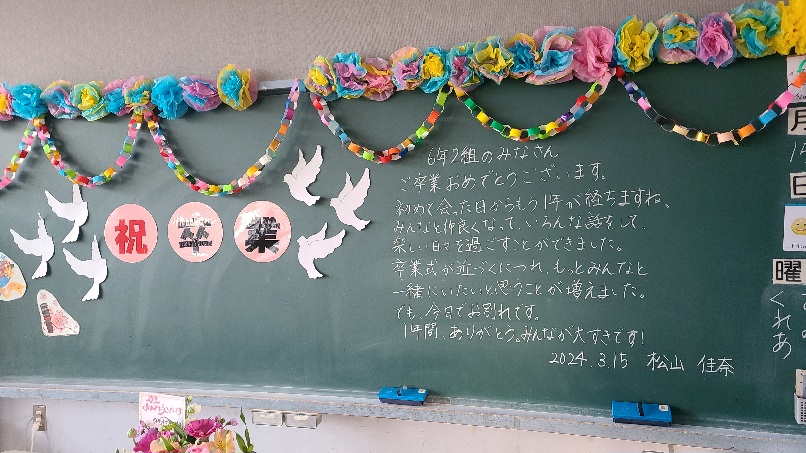 祝卒業
6年2組のみなさん
ご卒業おめでとうございます。
初めて会った日からもう1年が経ちますね。
みんなと仲良くなって、いろんな話をして、
楽しい日々を過ごすことができました。
卒業式が近づくにつれ、もっとみんなと
一緒にいたいと思うことが増えました。
でも、今日でお別れです。
1年間、ありがとう。みんなが大すきです!
2024.3.15 松山 佳奈
月
日
曜